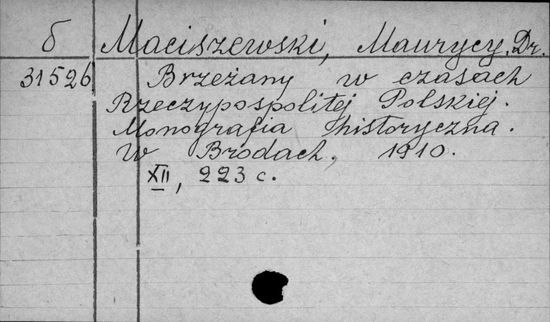 б Maciszewski, Maurycy, Dr.
31526 Brzeżany w czasach
Rzeczypospolitej Polskiej.
Monografia historyczna.
W Brodach, 1910.
XII, 223 c.